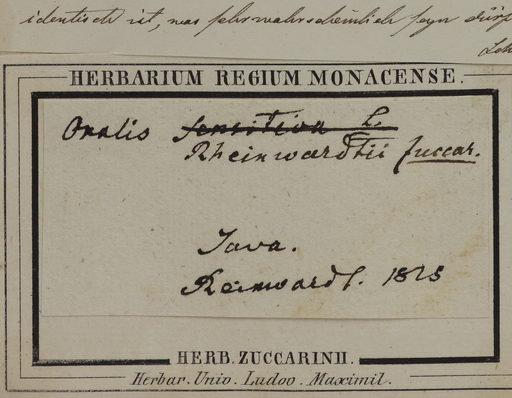 identisch ist, was sehr wahrscheinlich seyn dürf
HERBARIUM REGIUM MONACENSE.
Oxalis sensitiva L.
Rheinwardtii Zuccar.
Java.
Reinwardt. 1825
HERB. ZUCCARINII.
Herbar. Univ. Ludov. Maximil.